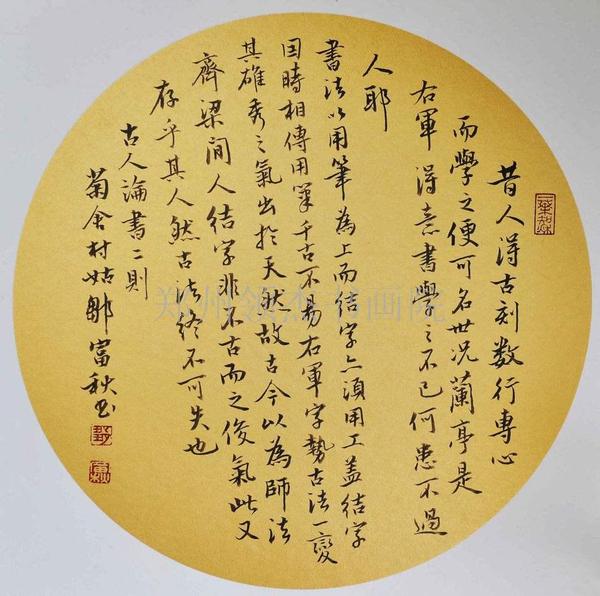 昔人得古刻数行專心
而學之便可名世况蘭亭是
右軍得意書學之不已何患不過
人耶
書法以用筆為上而結字亦須用工盖結字
因時相傳用筆千古不易右軍字勢古法一變
其雄秀之氣出於天然故古今以為師法
齊梁間人結字非不古而之俊氣此又
存乎其人然古法終不可失也
古人論書二則
菊舍村姑鄒富秋书
郑州领杰书画院